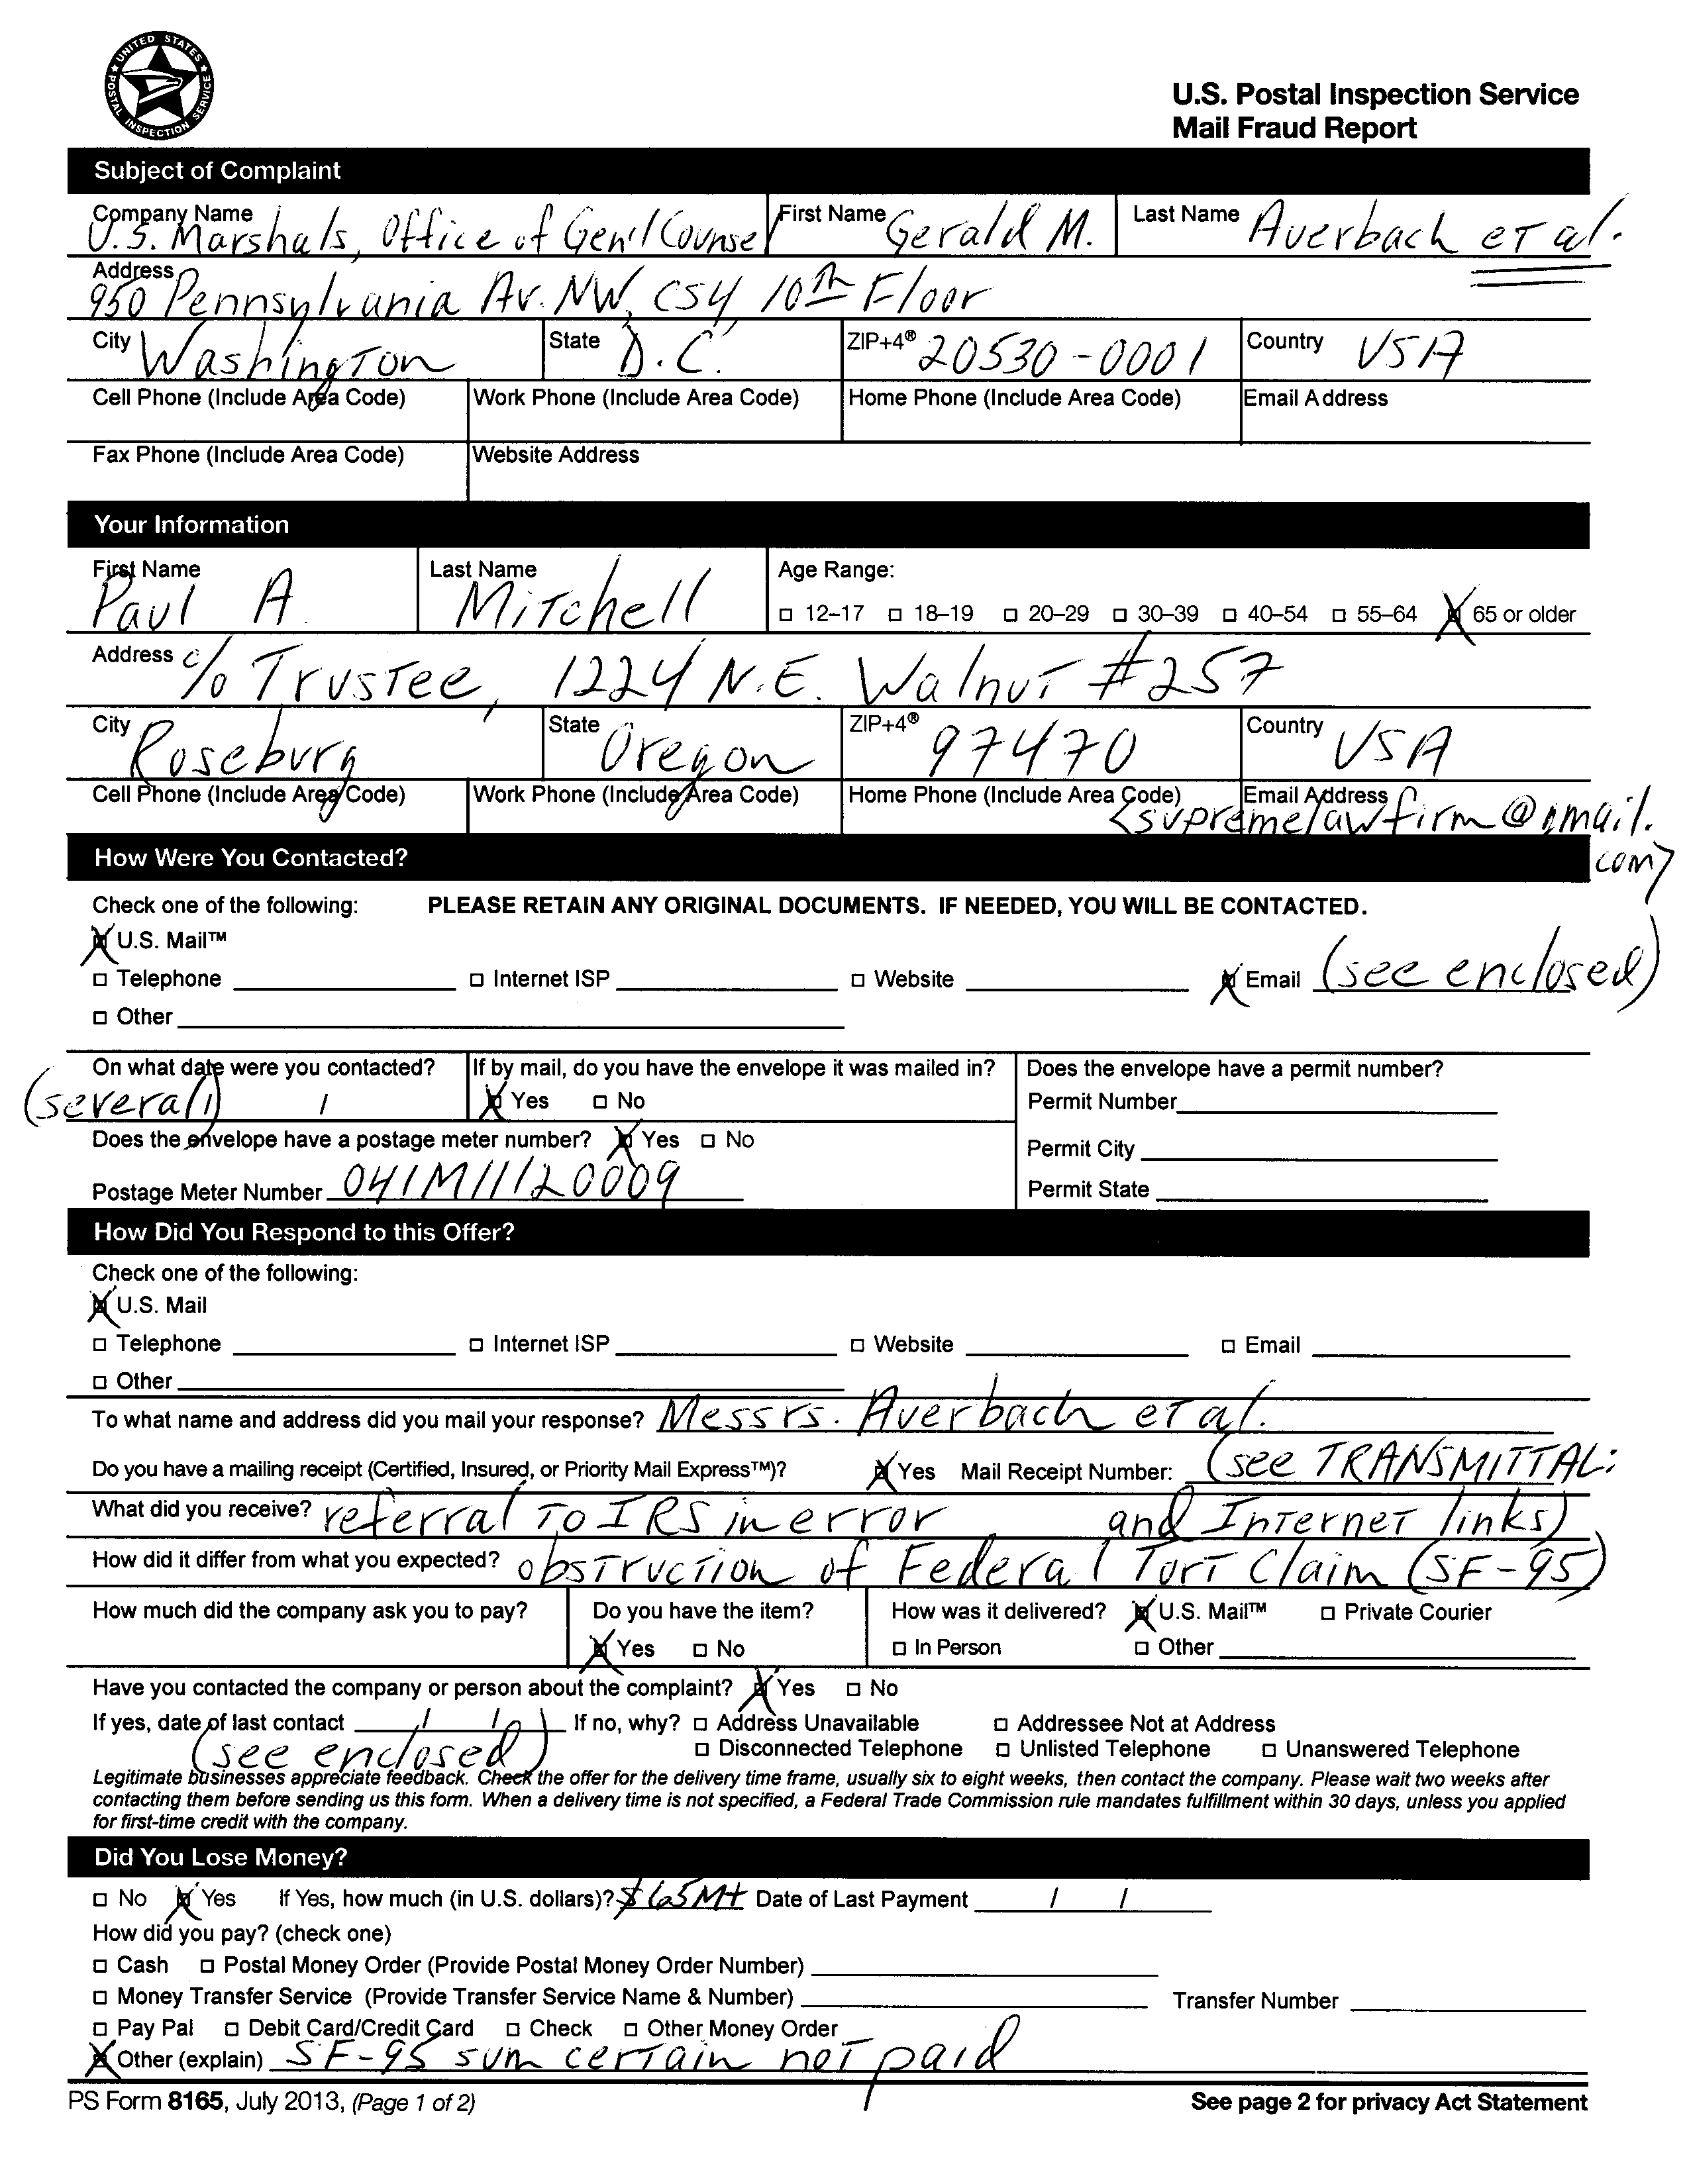 UNITED STATES POSTAL INSPECTION SERVICE
U.S. Postal Inspection Service
Mail Fraud Report
Subject of Complaint
Company Name U.S. Marshals, Office of Gen'l Counsel First Name Gerald M. Last Name Auerbach et al.
Address 950 Pennsylvania Av. NW, CS4, 10th Floor
City Washington State D.C. ZIP+4® 20530-0001 Country USA
Cell Phone (Include Area Code) Work Phone (Include Area Code) Home Phone (Include Area Code) Email Address
Fax Phone (Include Area Code) Website Address
Your Information
First Name Paul A. Last Name Mitchell Age Range:
12–17 18–19 20–29 30–39 40–54 55–64 X 65 or older
Address c/o Trustee, 1224 N.E. Walnut #257
City Roseburg State Oregon ZIP+4® 97470 Country USA
Cell Phone (Include Area Code) Work Phone (Include Area Code) Home Phone (Include Area Code) Email Address <supremelawfirm@gmail.
com>
How Were You Contacted?
Check one of the following: PLEASE RETAIN ANY ORIGINAL DOCUMENTS. IF NEEDED, YOU WILL BE CONTACTED.
X U.S. Mail™
Telephone Internet ISP Website X Email (see enclosed)
Other
On what date were you contacted? If by mail, do you have the envelope it was mailed in? Does the envelope have a permit number?
(several) / / X Yes No Permit Number
Does the envelope have a postage meter number? X Yes No Permit City
Postage Meter Number 041M11120009 Permit State
How Did You Respond to this Offer?
Check one of the following:
X U.S. Mail
Telephone Internet ISP Website Email
Other
To what name and address did you mail your response? Messrs. Auerbach et al.
Do you have a mailing receipt (Certified, Insured, or Priority Mail Express™)? X Yes Mail Receipt Number: (see TRANSMITTAL:
What did you receive? referral to IRS in error and Internet links)
How did it differ from what you expected? obstruction of Federal Tort Claim (SF-95)
How much did the company ask you to pay? Do you have the item? How was it delivered? X U.S. Mail™ Private Courier
X Yes No In Person Other
Have you contacted the company or person about the complaint? X Yes No
If yes, date of last contact / / If no, why? Address Unavailable Addressee Not at Address
(see enclosed) Disconnected Telephone Unlisted Telephone Unanswered Telephone
Legitimate businesses appreciate feedback. Check the offer for the delivery time frame, usually six to eight weeks, then contact the company. Please wait two weeks after
contacting them before sending us this form. When a delivery time is not specified, a Federal Trade Commission rule mandates fulfillment within 30 days, unless you applied
for first-time credit with the company.
Did You Lose Money?
No X Yes If Yes, how much (in U.S. dollars)? $65M+ Date of Last Payment / /
How did you pay? (check one)
Cash Postal Money Order (Provide Postal Money Order Number)
Money Transfer Service (Provide Transfer Service Name & Number) Transfer Number
Pay Pal Debit Card/Credit Card Check Other Money Order
X Other (explain) SF-95 sum certain not paid
PS Form 8165, July 2013, (Page 1 of 2) See page 2 for privacy Act Statement